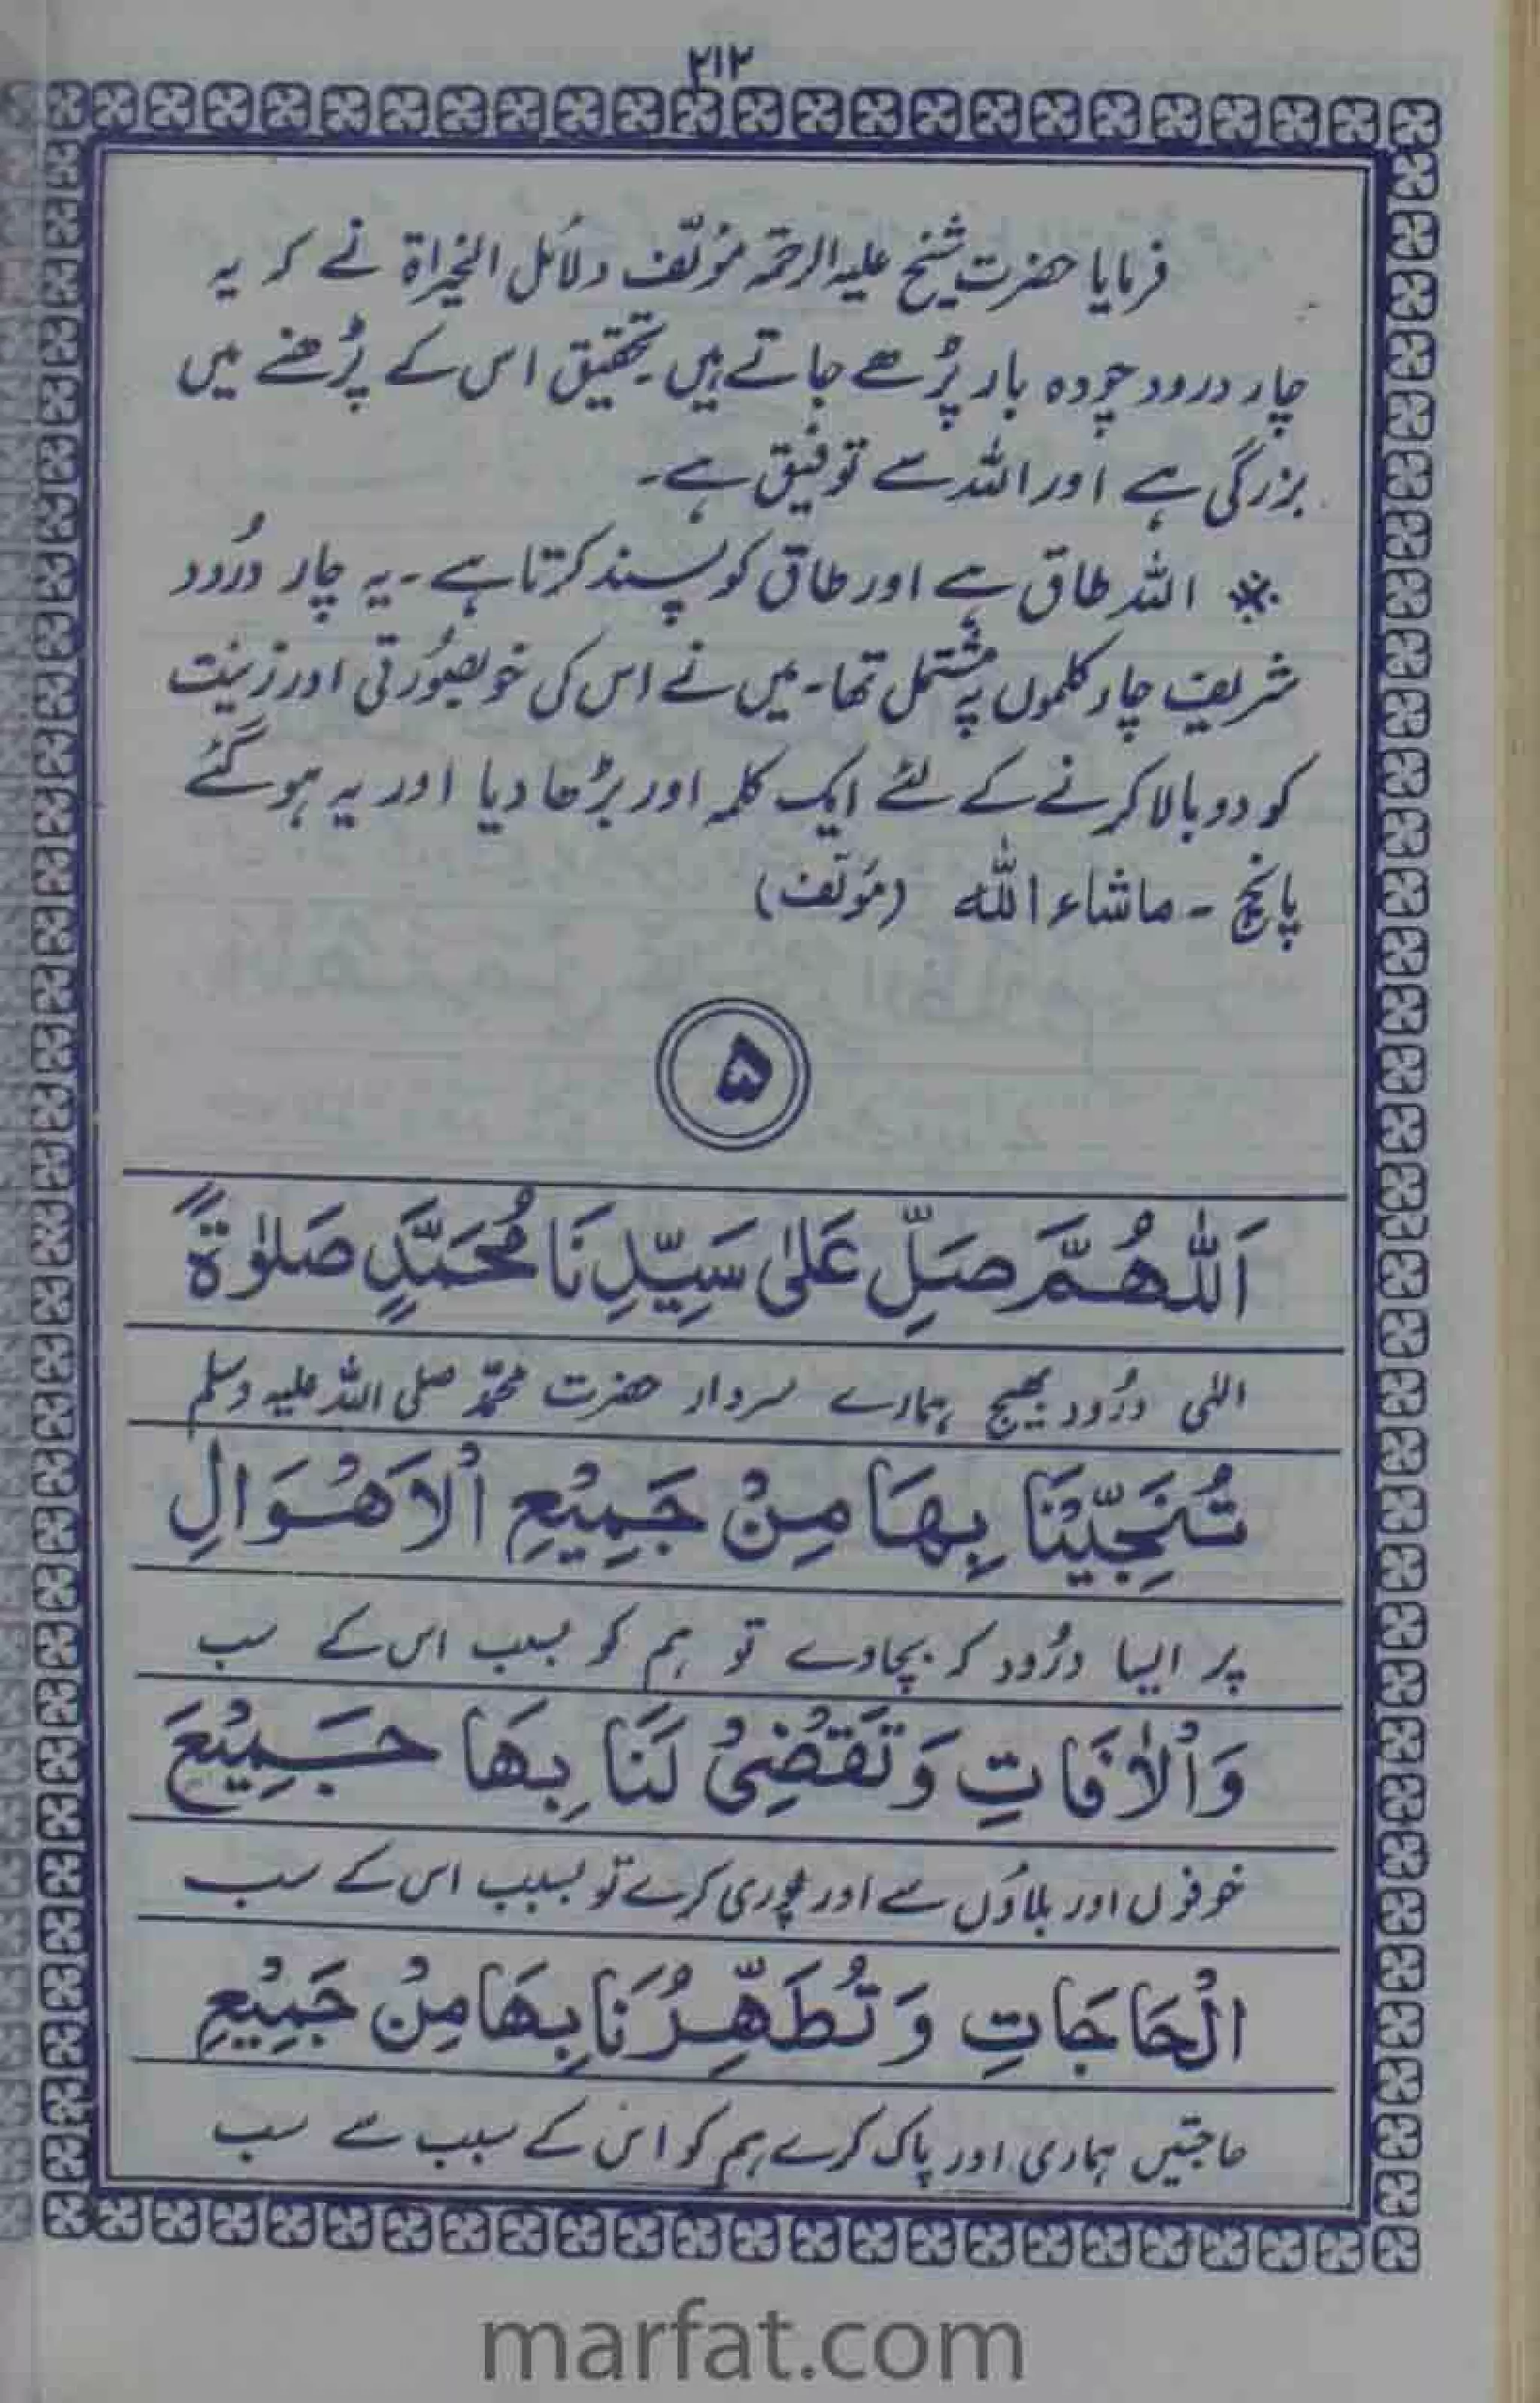 ۲۱۲
فرمایا حضرت شیخ علیہ الرحمۃ مؤلّف دلائل الخیراۃ نے کہ یہ
چار درود چودہ بار پڑھے جاتے ہیں۔ تحقیق اس کے پڑھنے میں
بزرگی ہے اور اللہ سے توفیق ہے۔
※ اللہ طاق ہے اور طاق کو پسند کرتا ہے۔ یہ چار دُرود
شریف چار کلموں پہ مشتمل تھا۔ میں نے اس کی خوبصُورتی اور زینت
کو دوبالا کرنے کے لئے ایک کلمہ اور بڑھا دیا اور یہ ہو گئے
پانچ - ماشاء اللہ (مؤلّف)
۵
اَللّٰهُمَّ صَلِّ عَلٰى سَيِّدِنَا مُحَمَّدٍ صَلٰوةً
الٰہی دُرُود بھیج ہمارے سردار حضرت محمّد صلی اللہ علیہ وسلم
تُنَجِّيْنَا بِهَا مِنْ جَمِيْعِ الْاَهْوَالِ
پر ایسا درُود کہ بچاوے تو ہم کو بسبب اس کے سب
وَالْاٰفَاتِ وَتَقْضِىْ لَنَا بِهَا جَمِيْعَ
خوفوں اور بلاؤں سے اور پُوری کرے تو بسبب اس کے سب
الْحَاجَاتِ وَتُطَهِّرُنَا بِهَا مِنْ جَمِيْعِ
حاجتیں ہماری اور پاک کرے ہم کو اس کے سبب سے سب
marfat.com